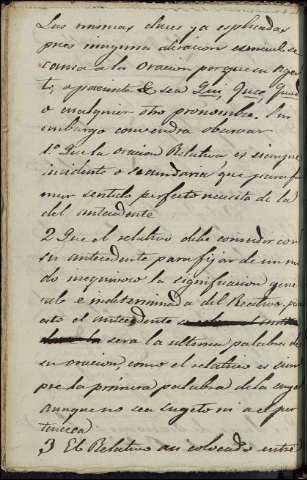 Las mismas clases ya esplicadas
pues ninguna alteracion esencial se
causa a la oracion porque su agen
te, o paciente sea Qui, Quae, Quod
o cualquier otro pronombre. Sin
embargo convendra observar
1.o Que la oracion Relativa es siempre
incidente o secundaria que para for
mar sentido perfecto necesita de la
del antecedente
2 Que el relativo debe convenir con
su antecedente para fijar de un mo
do inequivoco la significacion gene
rale e indeterminada del Relativo, para
esto el antecedente
sera la ultima palabra de
su oracion, como el relativo es siem
pre la primera palabra de la suya
aunque no sea sugeto ni a el per
tenezca
3 El Relativo asi colocado entre